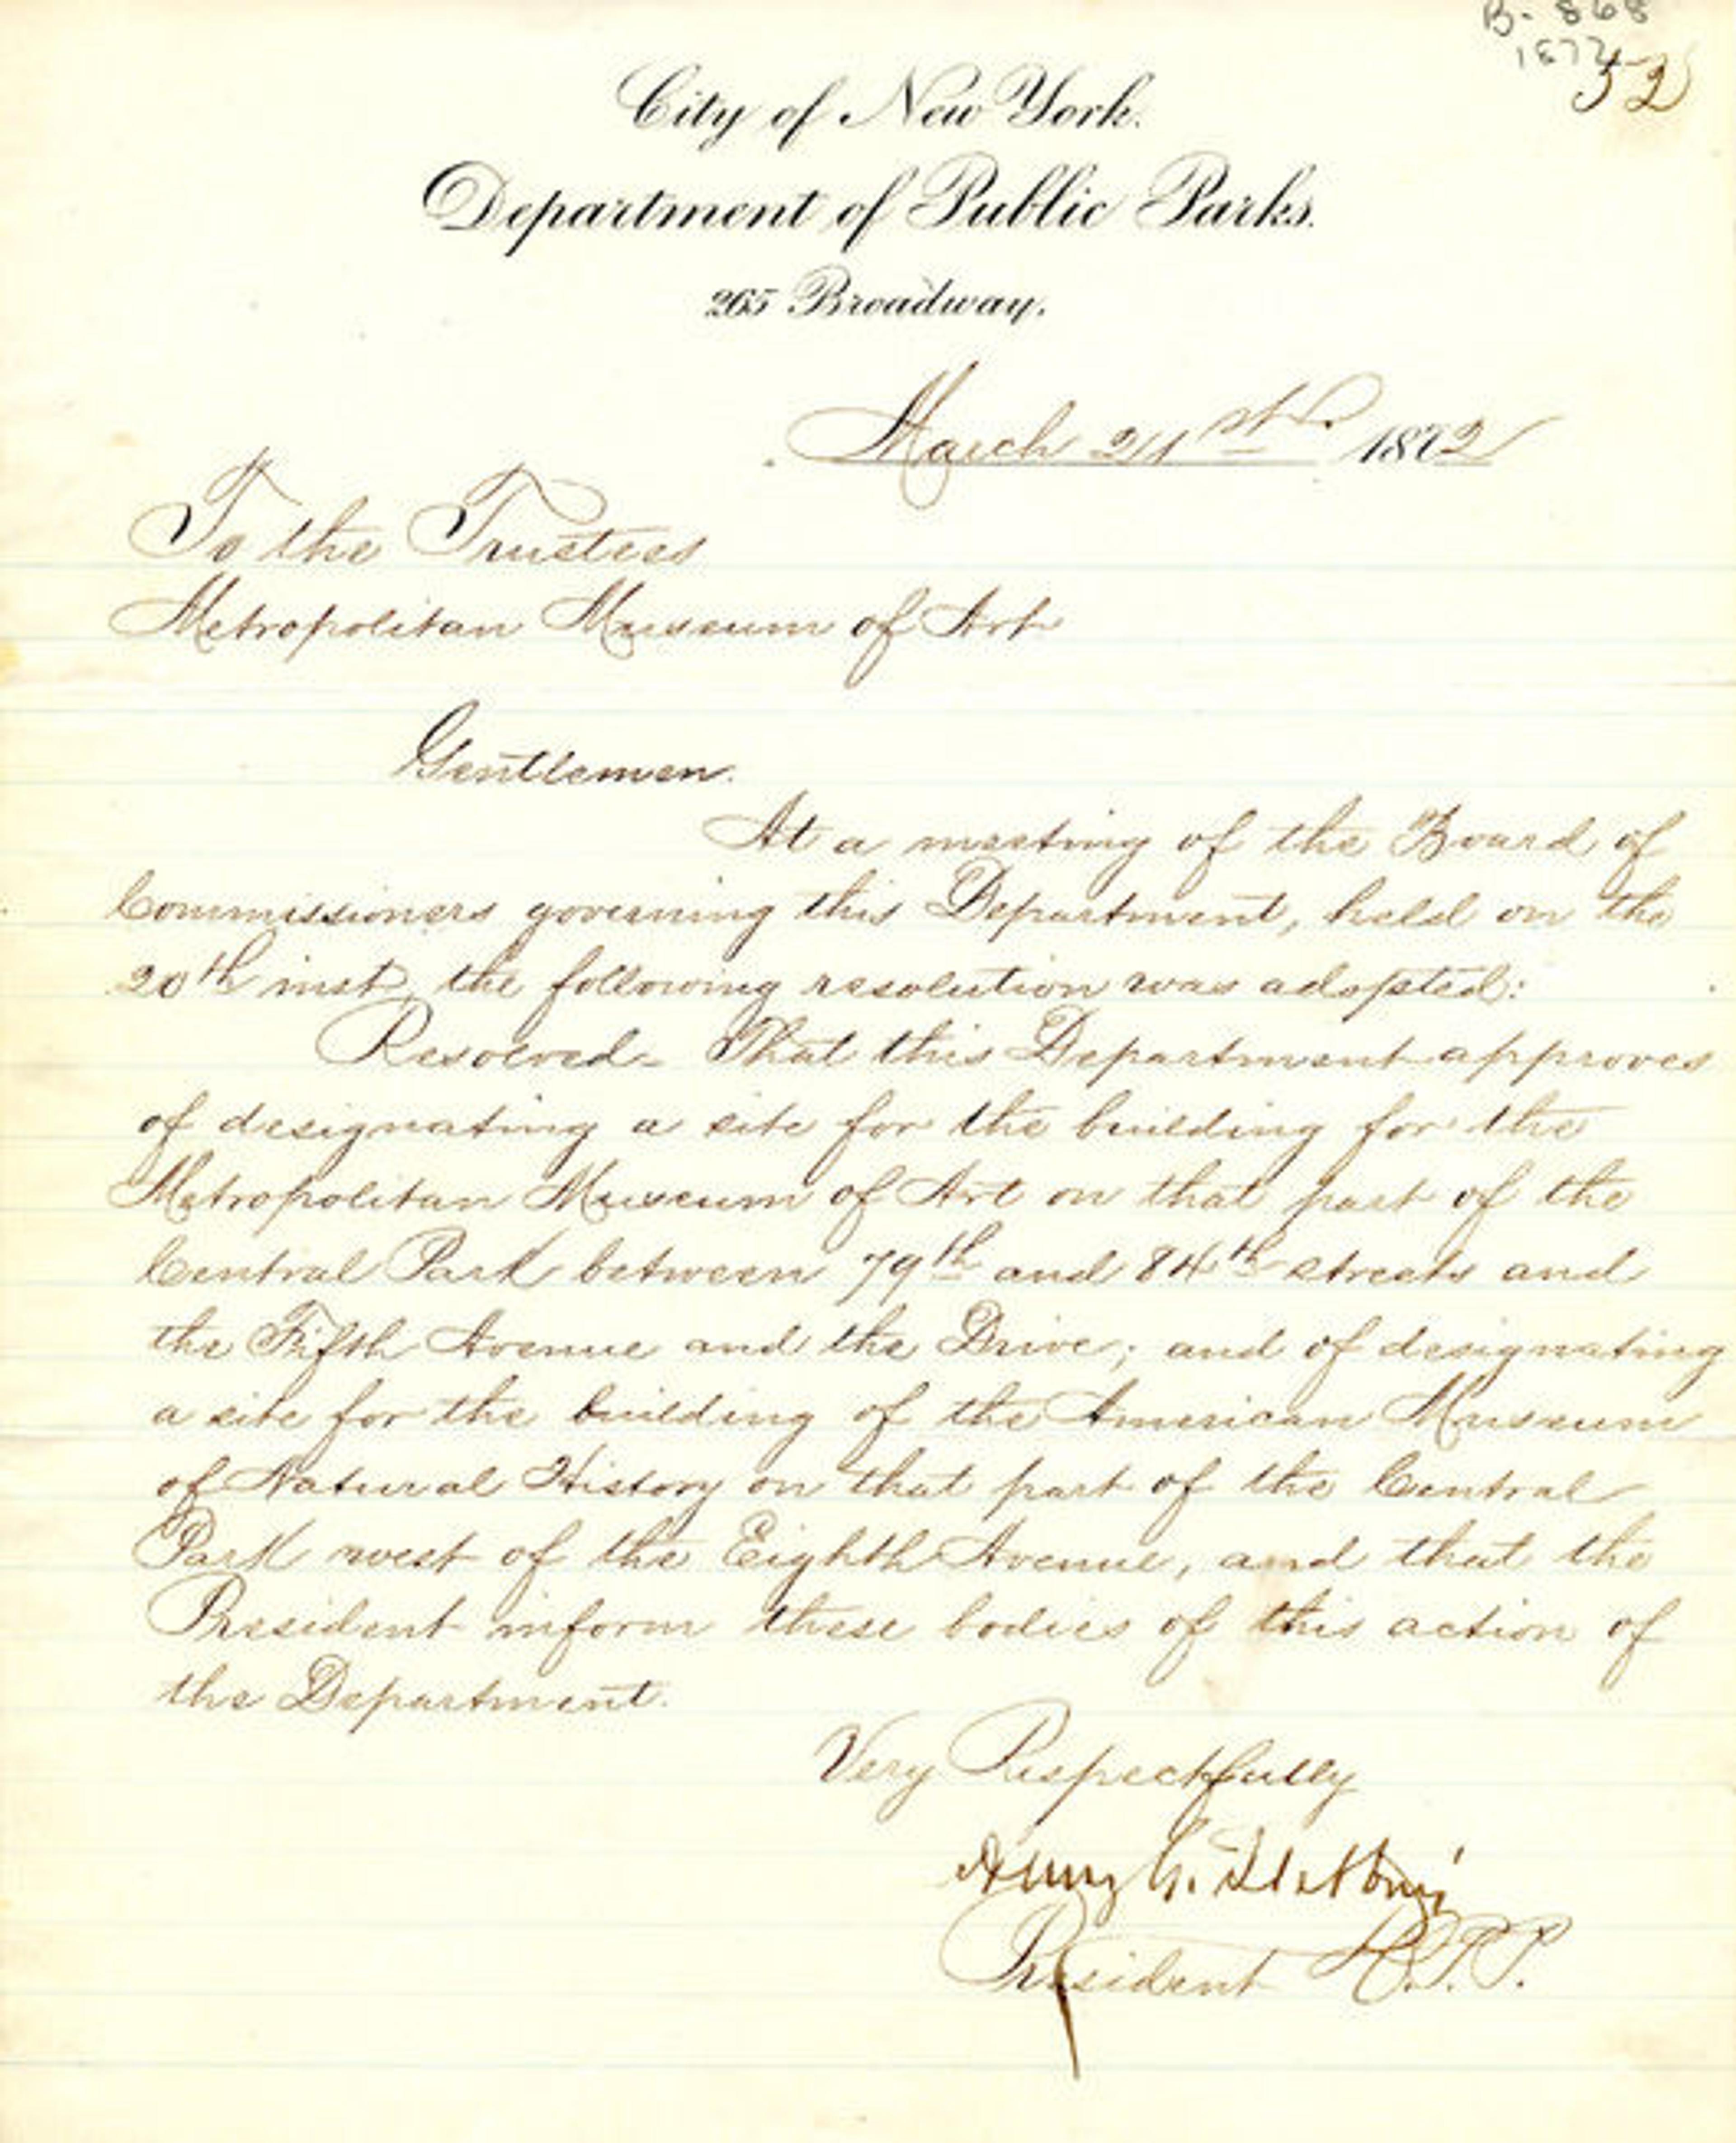 B- 868
1872
52
City of New York.
Department of Public Parks.
265 Broadway.
March 21st. 1872
To the Trustees
Metropolitan Museum of Art
Gentlemen.
At a meeting of the Board of
Commissioners governing this Department, held on the
20th inst, the following resolution was adopted:
Resolved - That this Department approves
of designating a site for the building for the
Metropolitan Museum of Art on that part of the
Central Park between 79th and 84th streets and
the Fifth Avenue and the Drive; and of designating
a site for the building of the American Museum
of Natural History on that part of the Central
Park west of the Eighth Avenue, and that the
President inform these bodies of this action of
the Department.
Very Respectfully
Henry G. Stebbins
President D.P.P.